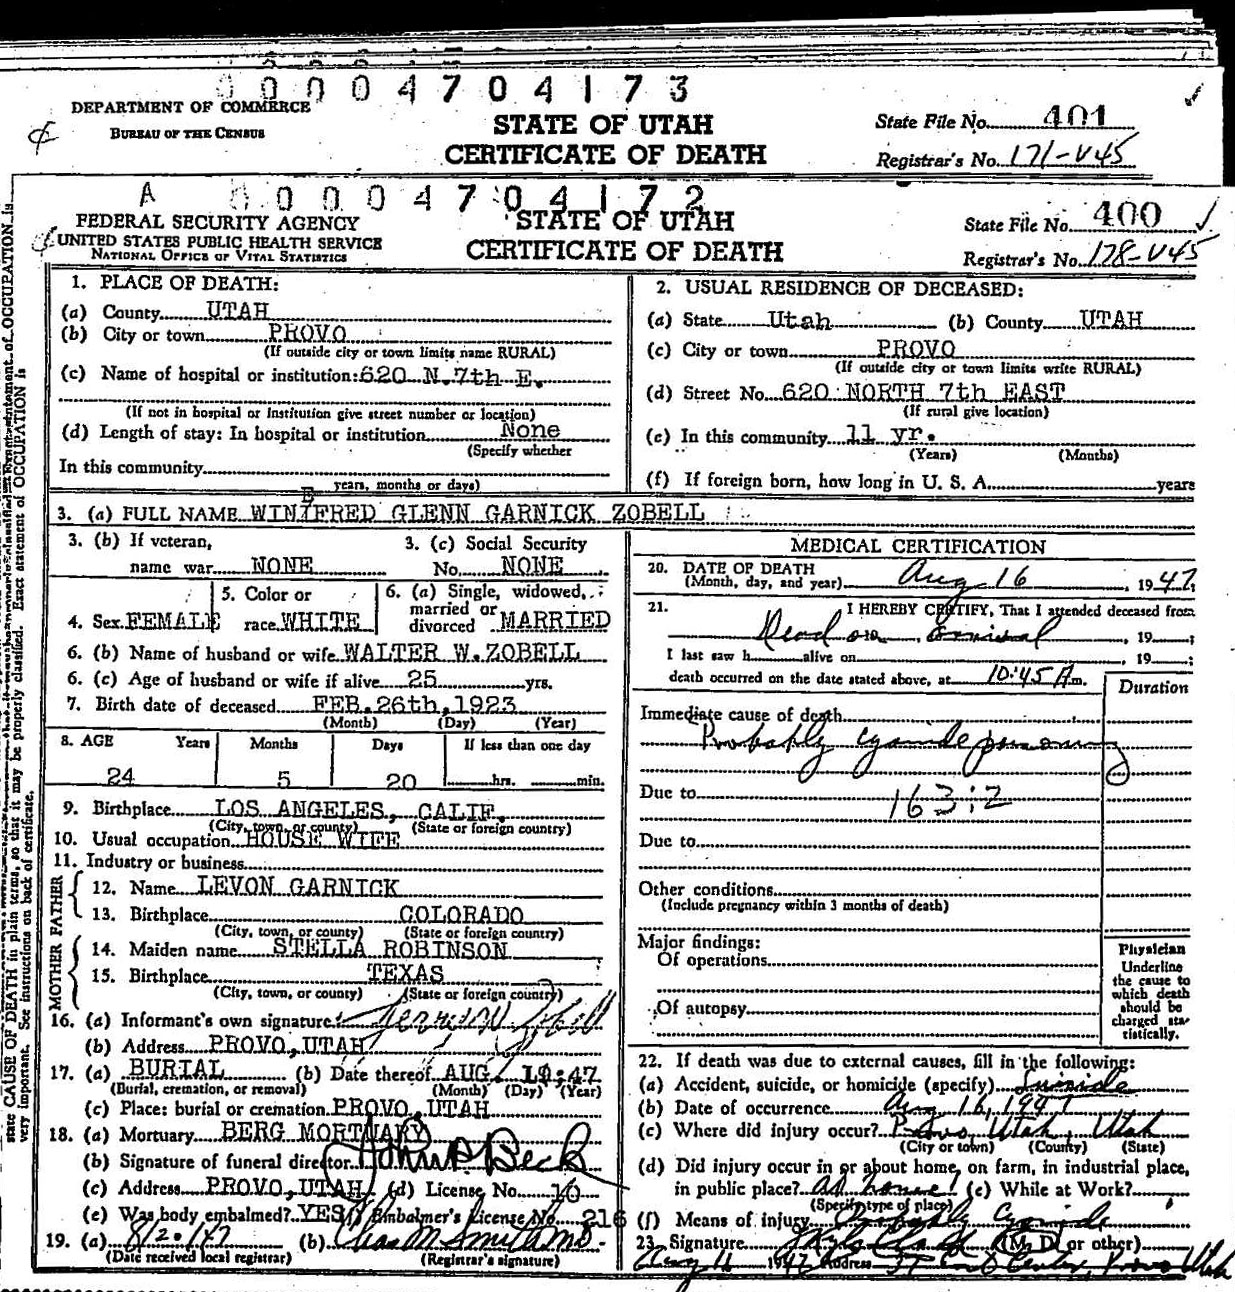 00004704173
DEPARTMENT OF COMMERCE
BUREAU OF THE CENSUS
STATE OF UTAH
CERTIFICATE OF DEATH
State File No. 401
Registrar's No. 171-V45
A 00004704172
FEDERAL SECURITY AGENCY
UNITED STATES PUBLIC HEALTH SERVICE
NATIONAL OFFICE OF VITAL STATISTICS
STATE OF UTAH
CERTIFICATE OF DEATH
State File No. 400
Registrar's No. 178-V45
1. PLACE OF DEATH:
(a) County UTAH
(b) City or town PROVO
(If outside city or town limits name RURAL)
(c) Name of hospital or institution: 620 N. 7th E.
(If not in hospital or institution give street number or location)
(d) Length of stay: In hospital or institution None
(Specify whether
In this community
years, months or days)
2. USUAL RESIDENCE OF DECEASED:
(a) State Utah (b) County UTAH
(c) City or town PROVO
(If outside city or town limits write RURAL)
(d) Street No. 620 NORTH 7th EAST
(If rural give location)
(e) In this community 11 yr.
(Years) (Months)
(f) If foreign born, how long in U. S. A. years
3. (a) FULL NAME WINIFRED GLENN GARNICK ZOBELL
E
3. (b) If veteran, name war NONE
3. (c) Social Security No. NONE
4. Sex FEMALE
5. Color or race WHITE
6. (a) Single, widowed, married or divorced MARRIED
6. (b) Name of husband or wife WALTER W. ZOBELL
6. (c) Age of husband or wife if alive 25 yrs.
7. Birth date of deceased FEB. 26th, 1923
(Month) (Day) (Year)
8. AGE Years Months Days If less than one day
24 5 20 hrs. min.
9. Birthplace LOS ANGELES, CALIF.
(City, town, or county) (State or foreign country)
10. Usual occupation HOUSE WIFE
11. Industry or business
FATHER
12. Name LEVON GARNICK
13. Birthplace COLORADO
(City, town, or county) (State or foreign country)
MOTHER
14. Maiden name STELLA ROBINSON
15. Birthplace TEXAS
(City, town, or county) (State or foreign country)
16. (a) Informant's own signature:
(b) Address PROVO, UTAH
17. (a) BURIAL (b) Date thereof AUG. 19, 47
(Burial, cremation, or removal) (Month) (Day) (Year)
(c) Place: burial or cremation PROVO, UTAH
18. (a) Mortuary BERG MORTUARY
(b) Signature of funeral director
(c) Address PROVO, UTAH (d) License No. 10
(e) Was body embalmed? YES Embalmer's License No. 216
19. (a) (b) Chas M Smith MD.
(Date received local registrar) (Registrar's signature)
MEDICAL CERTIFICATION
20. DATE OF DEATH
(Month, day, and year) Aug 16, 1947;
21. I HEREBY CERTIFY, That I attended deceased from
Dead on arrival, 19 ;
I last saw h alive on , 19 ;
death occurred on the date stated above, at 10:45 A m.
Duration
Immediate cause of death
Probably cyanide poisoning
Due to 163:2
Due to
Other conditions
(Include pregnancy within 3 months of death)
Major findings:
Of operations
Of autopsy
Physician
Underline
the cause to
which death
should be
charged sta-
tistically.
22. If death was due to external causes, fill in the following:
(a) Accident, suicide, or homicide (specify) Suicide
(b) Date of occurrence Aug 16, 1947
(c) Where did injury occur? Provo, Utah, Utah
(City or town) (County) (State)
(d) Did injury occur in or about home, on farm, in industrial place,
in public place? at home (e) While at Work?
(Specify type of place)
(f) Means of injury Probably cyanide
23. Signature (M. D. or other)
1947 Address Center, Provo Utah
state CAUSE OF DEATH in plain terms, so that it may be properly classified. Exact statement of OCCUPATION is
very important. See instructions on back of certificate.